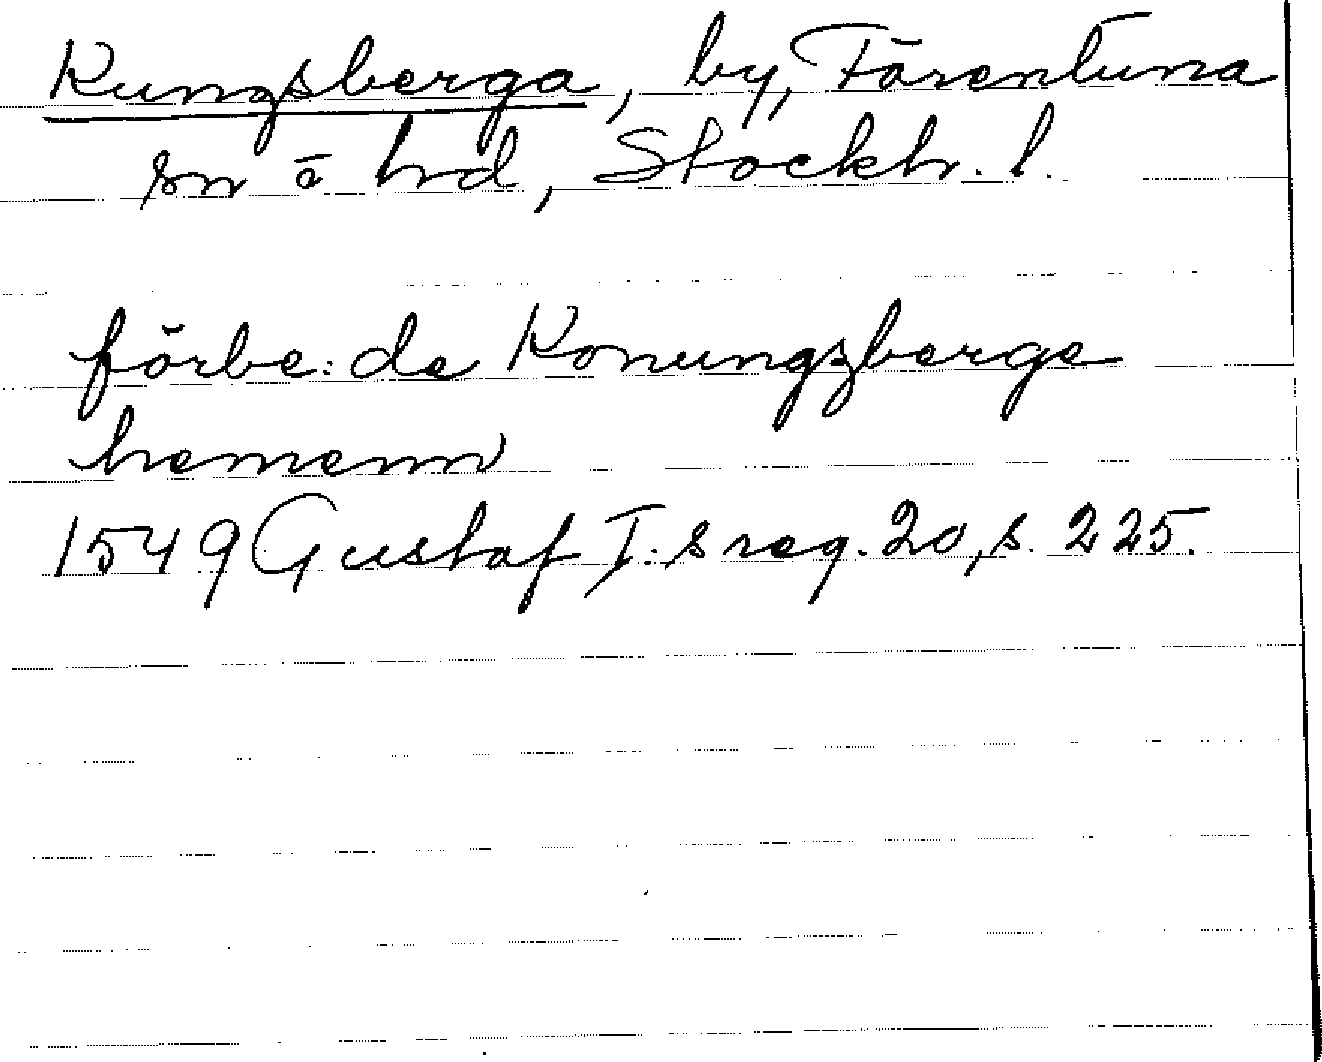 Kungsberga, by, Färentuna
sn o hrd, Stockh. l.
förbe: de Konungzberge
hemenn
1549 Gustaf I:s reg. 20, s. 225.